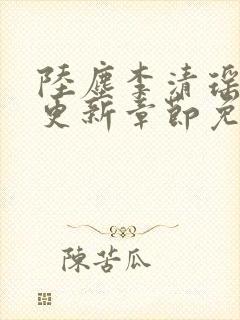 陸塵李清瑶
更新章節免
陳苦瓜